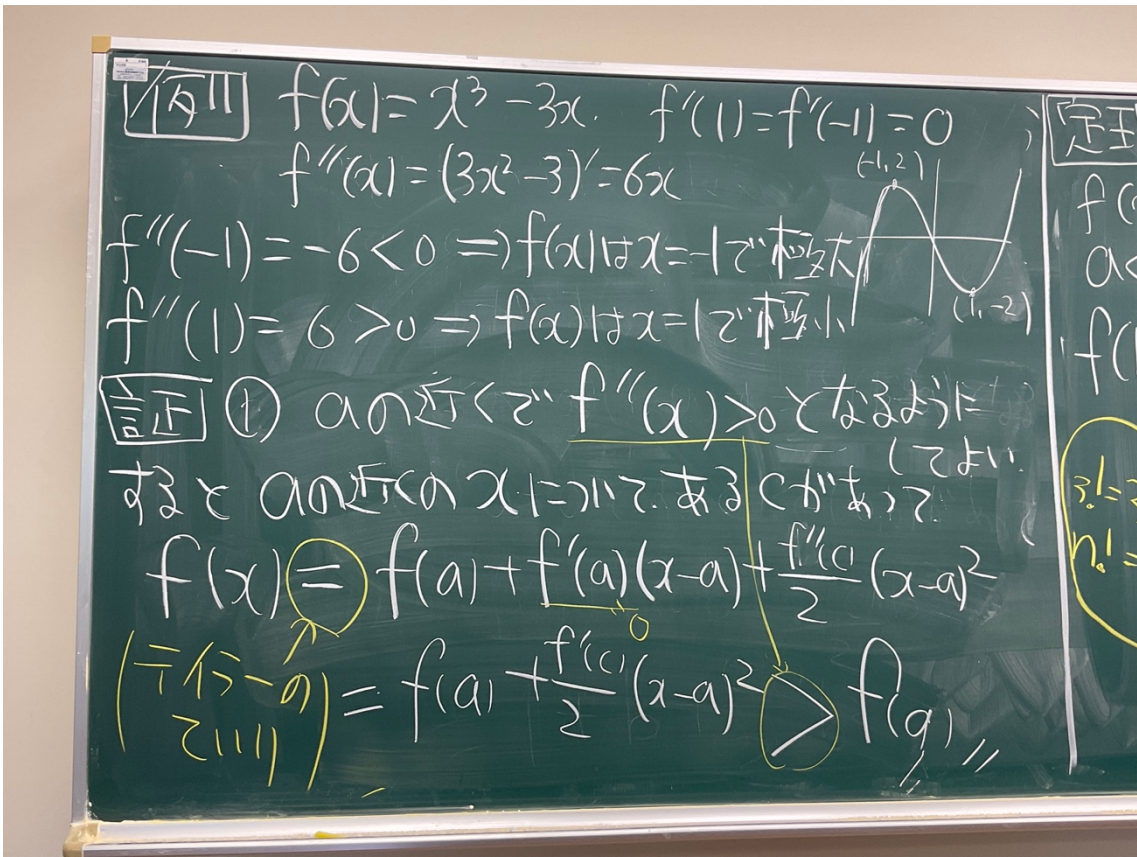 例 f(x)=x³-3x. f'(1)=f'(-1)=0
f''(x)=(3x²-3)'=6x
(-1,2)
f''(-1)=-6<0⇒f(x)はx=-1で極大
f''(1)=6>0⇒f(x)はx=1で極小
(1,-2)
証 ① aの近くでf''(x)>0となるように
してよい.
するとaの近くのxについて.あるcがあって.
f(x)=f(a)+f'(a)(x-a)+f''(c)/2(x-a)²
0
(テイラーの
てい11)
=f(a)+f''(c)/2(x-a)²>f(a)〃
定
f(
a<
f(
3!=
n!=